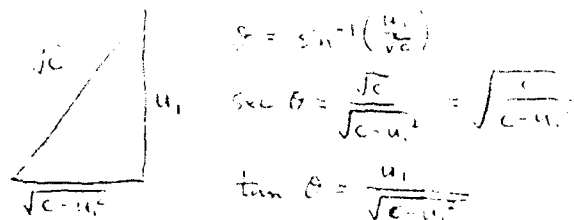 √c
u₁
√(c - u₁²)
θ = sin⁻¹(u₁/√c)
sec θ = √c/√(c - u₁²) = √(c/(c - u₁²))
tan θ = u₁/√(c - u₁²)